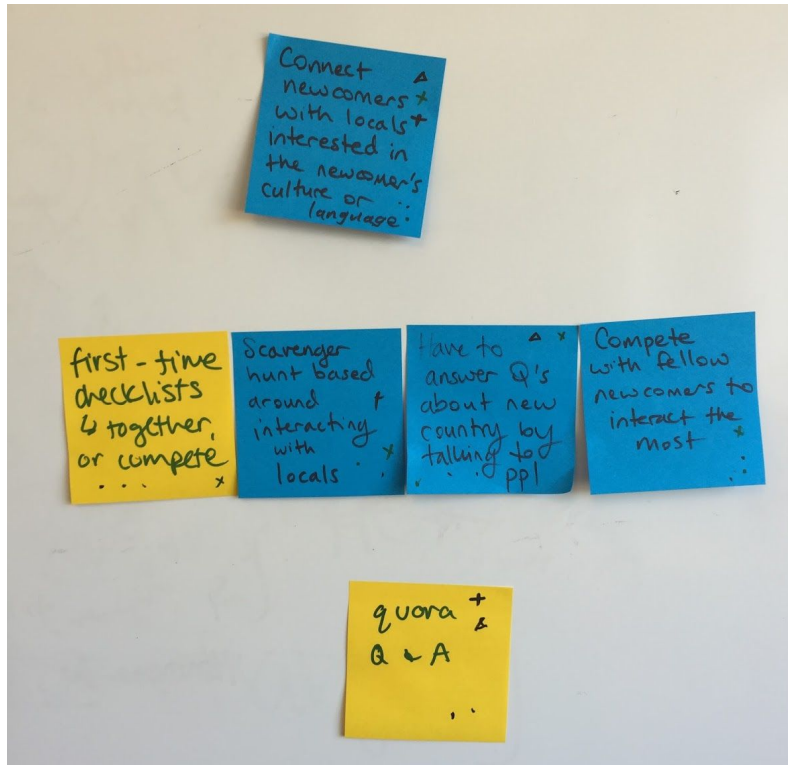 Connect
newcomers
with locals
interested in
the newcomer's
culture or
language
first-time
checklists
↳ together,
or compete
Scavenger
hunt based
around
interacting
with
locals
Have to
answer Q's
about new
country by
talking to
ppl
Compete
with fellow
newcomers to
interact the
most
quora
Q & A